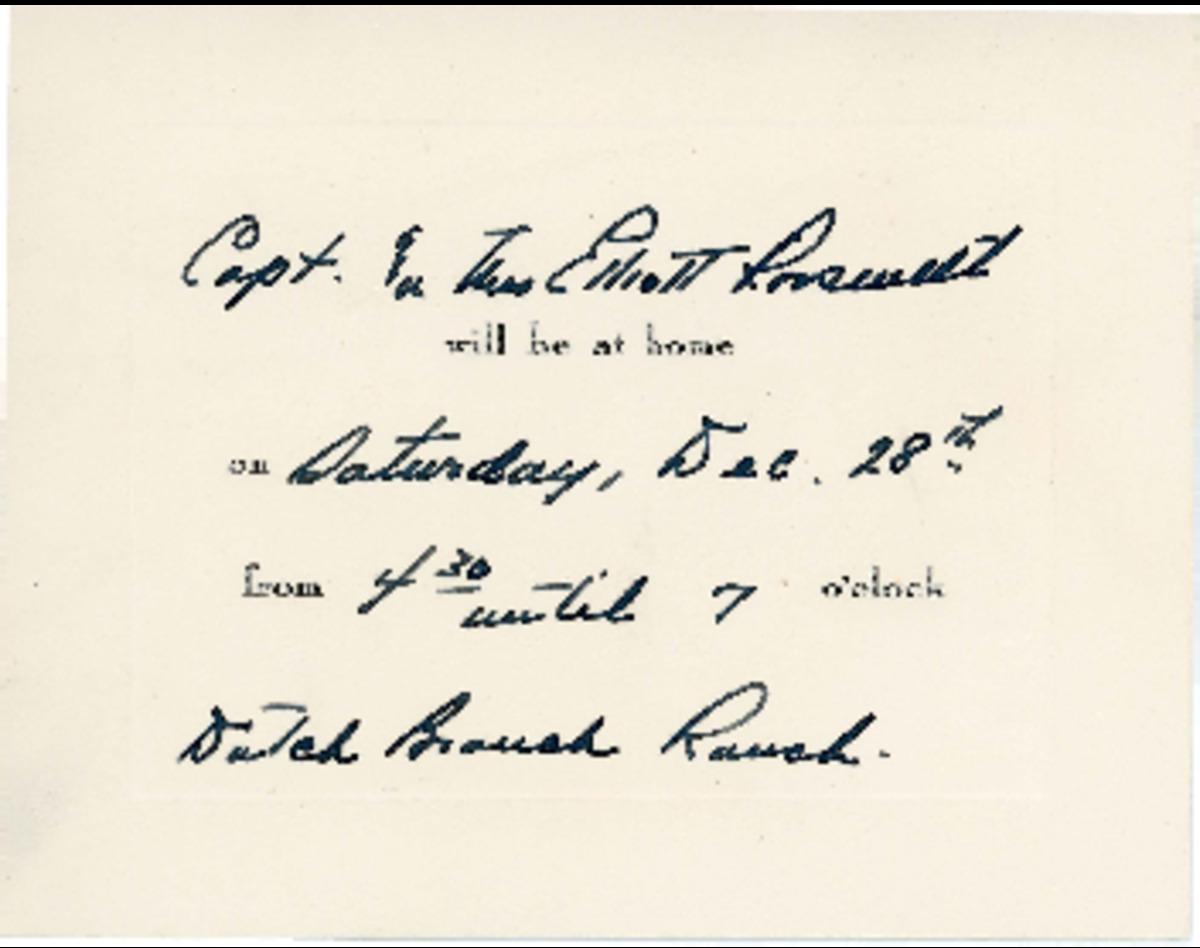 Capt. & Mrs Elliott Roosevelt
will be at home
on Saturday, Dec. 28th
from 4 30 until 7 o'clock
Dutch Branch Ranch.